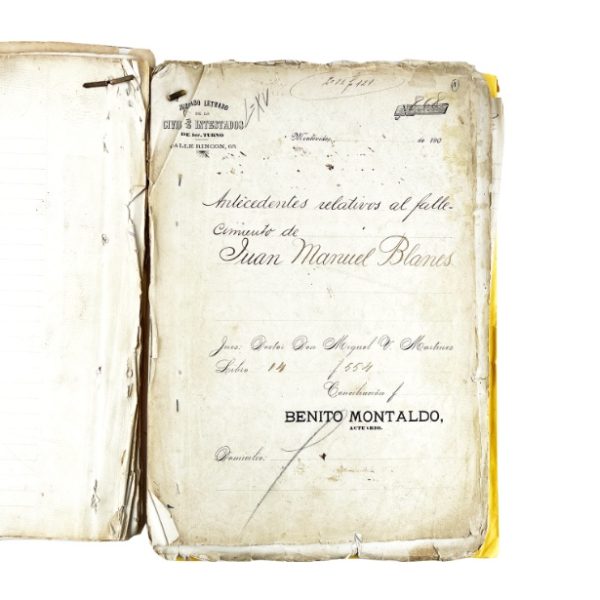 2 nº f 121
1
JUZGADO LETRADO
DE LO
CIVIL É INTESTADOS
DE 1er. TURNO
CALLE RINCON, 68
I-XV
868
Montevideo, de 190
Antecedentes relativos al falle-
cimiento de
Juan Manuel Blanes
Juez: Doctor Don Miguel V. Martinez
Libro 14 f 554
Conciliación f
BENITO MONTALDO,
ACTUARIO.
Domicilio: